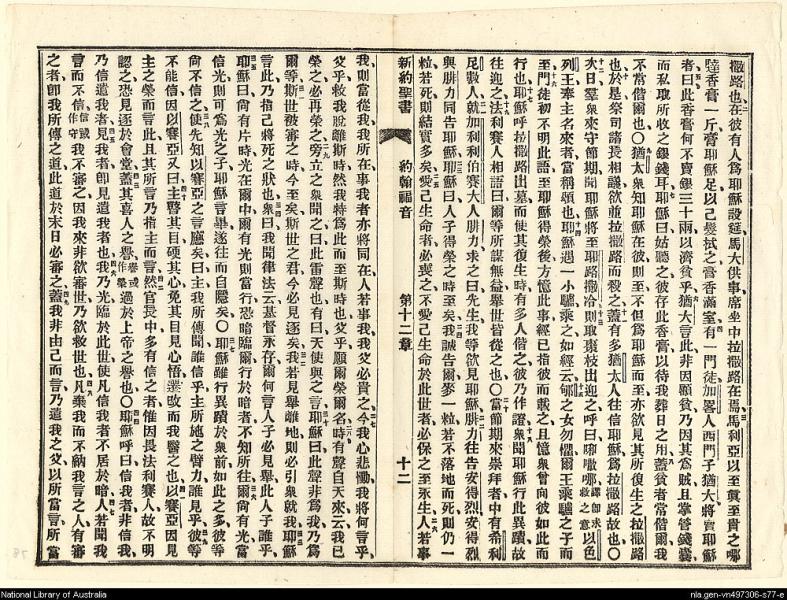 撒路也在彼有人爲耶穌設筵馬大供事席坐中拉撒路在焉馬利亞以至眞至貴之哪
達香膏一斤膏耶穌足以己髮拭之膏香滿室有一門徒加畧人西門子猶大將賣耶穌
者曰此香膏何不賣銀三十兩以濟貧乎猶大言此非因顧貧乃因其爲賊且掌管錢囊
而私取所收之銀錢耳耶穌曰姑聽之彼存此香膏以待我葬日之用蓋貧者常偕爾我
不常偕爾也〇猶太衆知耶穌在彼則至不但爲耶穌而至亦欲見其所復生之拉撒路
也於是祭司諸長相議欲並拉撒路而殺之蓋有多猶太人往信耶穌爲拉撒路故也〇
次日羣衆來守節期聞耶穌將至耶路撒冷則取棗枝出迎之呼曰譯卽求救之意以色
列王奉主名來者當稱頌也耶穌遇一小驢乘之如經云郇之女勿懼爾王乘驢之子而
至門徒初不明此語至耶穌得榮後方憶此事經已指彼而載之且憶衆曾向彼如此而
行也耶穌呼拉撒路出墓而使其復生時有多人偕之彼乃作證衆聞耶穌行此異蹟故
往迎之法利賽人相語曰爾等所謀無益舉世皆從之也〇當節期來崇拜者中有希利
尼數人就加利利伯賽大人腓力求之曰先生我等欲見耶穌腓力往告安得烈安得烈
與腓力同告耶穌耶穌曰人子得榮之時至矣我誠告爾麥一粒若不落地而死則仍一
粒若死則結實多矣愛己生命者必喪之不愛己生命於此世者必保之至永生人若事
新約聖書 約翰福音 第十二章 十二
我則當從我我所在事我者亦將同在人若事我我父必貴之今我心悲慟我將何言乎
父乎救我脫離斯時然我特爲此而至斯時也父乎願爾榮爾名時有聲自天來云我已
榮之必再榮之旁立之衆聞之曰此雷聲也有曰天使與之言耶穌曰此聲非爲我乃爲
爾等斯世被審之時今至矣斯世之君今必見逐矣我若見舉離地則必引衆就我耶穌
言此乃指己將死之狀也衆曰我聞律法云基督永存爾何言人子必見舉此人子誰乎
耶穌曰尙有片時光在爾中爾有光則當行恐暗臨爾行於暗者不知所往爾尙有光當
信光則可爲光之子耶穌言畢遂往而自隱矣〇耶穌雖行異蹟於衆前如此之多彼等
尙不信之使先知以賽亞之言應矣曰主我所傳聞誰信乎主所施之臂力誰見乎彼等
不能信因以賽亞又曰主瞽其目硬其心免其目見心悟遷改而我醫之也以賽亞因見
主之榮而言此且其所言乃指主而言然官長中多有信之者惟因畏法利賽人故不明
認之恐見逐於會堂蓋其喜人之譽譽或作榮過於上帝之譽也〇耶穌呼曰信我者非信我
乃信遣我者見我者卽見遣我者也我乃光臨於此世使凡信我者不居於暗人若聞我
言而不信信或作守我不審之因我來非欲審世乃欲救世也凡棄我而不納我言之人有審
之者卽我所傳之道此道於末日必審之蓋我非由己而言乃遣我之父以所當言所當
National Library of Australia
nla.gen-vn497306-s77-e